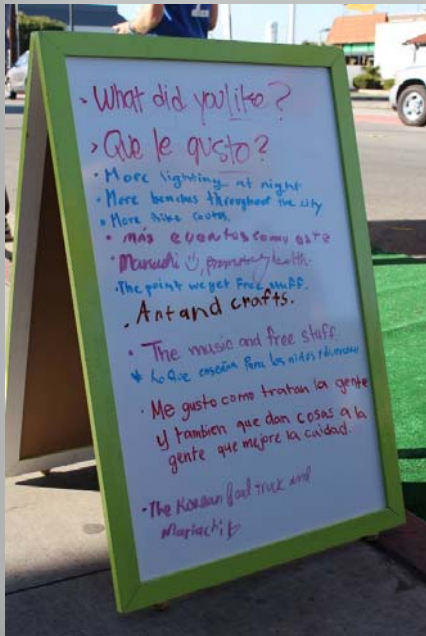 > What did you like?
> Que le gusto?
· More lighting at night
· More benches throughout the city
· More bike routes.
· más eventos como este
· Mariachi :), promoting health.
· The point we get Free stuff.
· Art and crafts.
· The music and free stuff
* Lo que enseña para los niños y
· Me gusto como tratan la gente
y tambien que dan cosas a la
gente que mejore la cuidad.
· The Korean food truck and
Mariachi